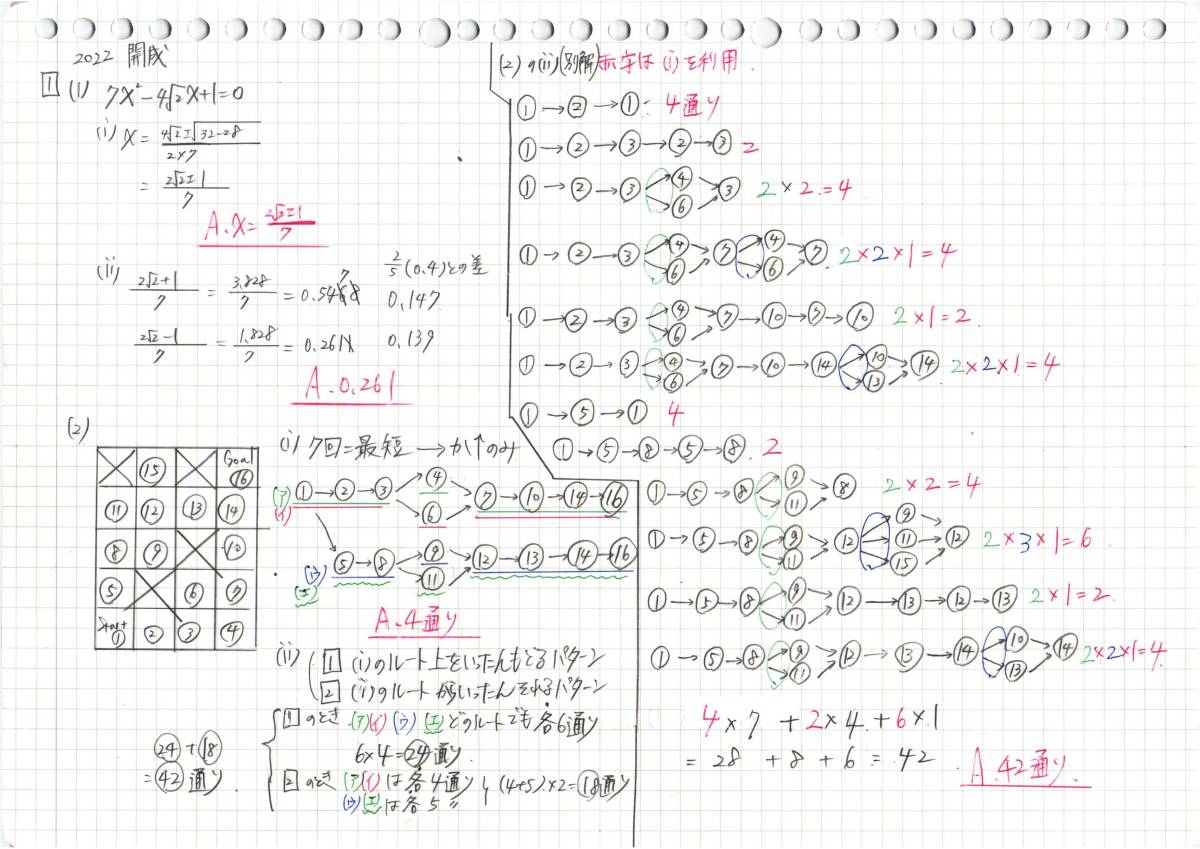 2022 開成
1 (1) 7x²-4√2x+1=0
(i) x= 4√2±√32-28 / 2×7
= 2√2±1 / 7
A. x= 2√2±1 / 7
(ii) 2√2+1 / 7 = 3.828 / 7 = 0.547
2/5 (0.4)との差
0.147
2√2-1 / 7 = 1.828 / 7 = 0.261
0.139
A. 0.261
(2)
⑮ Goal ⑯
⑪ ⑫ ⑬ ⑭
⑧ ⑨ ⑩
⑤ ⑥ ⑦
Start ① ② ③ ④
(i) 7回=最短 → →か↑のみ
(ア)(イ) ①→②→③ ④ ⑥ ⑦→⑩→⑭→⑯
(ウ)(エ) ⑤→⑧ ⑨ ⑪ ⑫→⑬→⑭→⑯
A. 4通り
(ii) 1 (i)のルート上をいったんもどるパターン
2 (i)のルートからいったんそれるパターン
1 のとき (ア)(イ)(ウ)(エ) どのルートでも各6通り
6×4=24通り.
2 のとき (ア)(イ)は各4通り (4+5)×2=18通り
(ウ)(エ)は各5〃
24+18
=42通り.
(2)の(ii)(別解)赤字は(i)を利用.
①→②→①: 4通り
①→②→③→②→③ 2
①→②→③ ④ ⑥ →③ 2×2=4
①→②→③ ④ ⑥ ⑦ ④ ⑥ ⑦. 2×2×1=4
①→②→③ ④ ⑥ ⑦→⑩→⑦→⑩ 2×1=2.
①→②→③ ④ ⑥ ⑦→⑩→⑭ ⑩ ⑬ ⑭ 2×2×1=4
①→⑤→① 4
①→⑤→⑧→⑤→⑧. 2
①→⑤→⑧ ⑨ ⑪ →⑧ 2×2=4
①→⑤→⑧ ⑨ ⑪ ⑫ ⑨ ⑪ ⑮ ⑫ 2×3×1=6
①→⑤→⑧ ⑨ ⑪ ⑫→⑬→⑫→⑬ 2×1=2.
①→⑤→⑧ ⑨ ⑪ ⑫→⑬→⑭ ⑩ ⑬ ⑭ 2×2×1=4
4×7+2×4+6×1
=28+8+6=42.
A. 42通り.